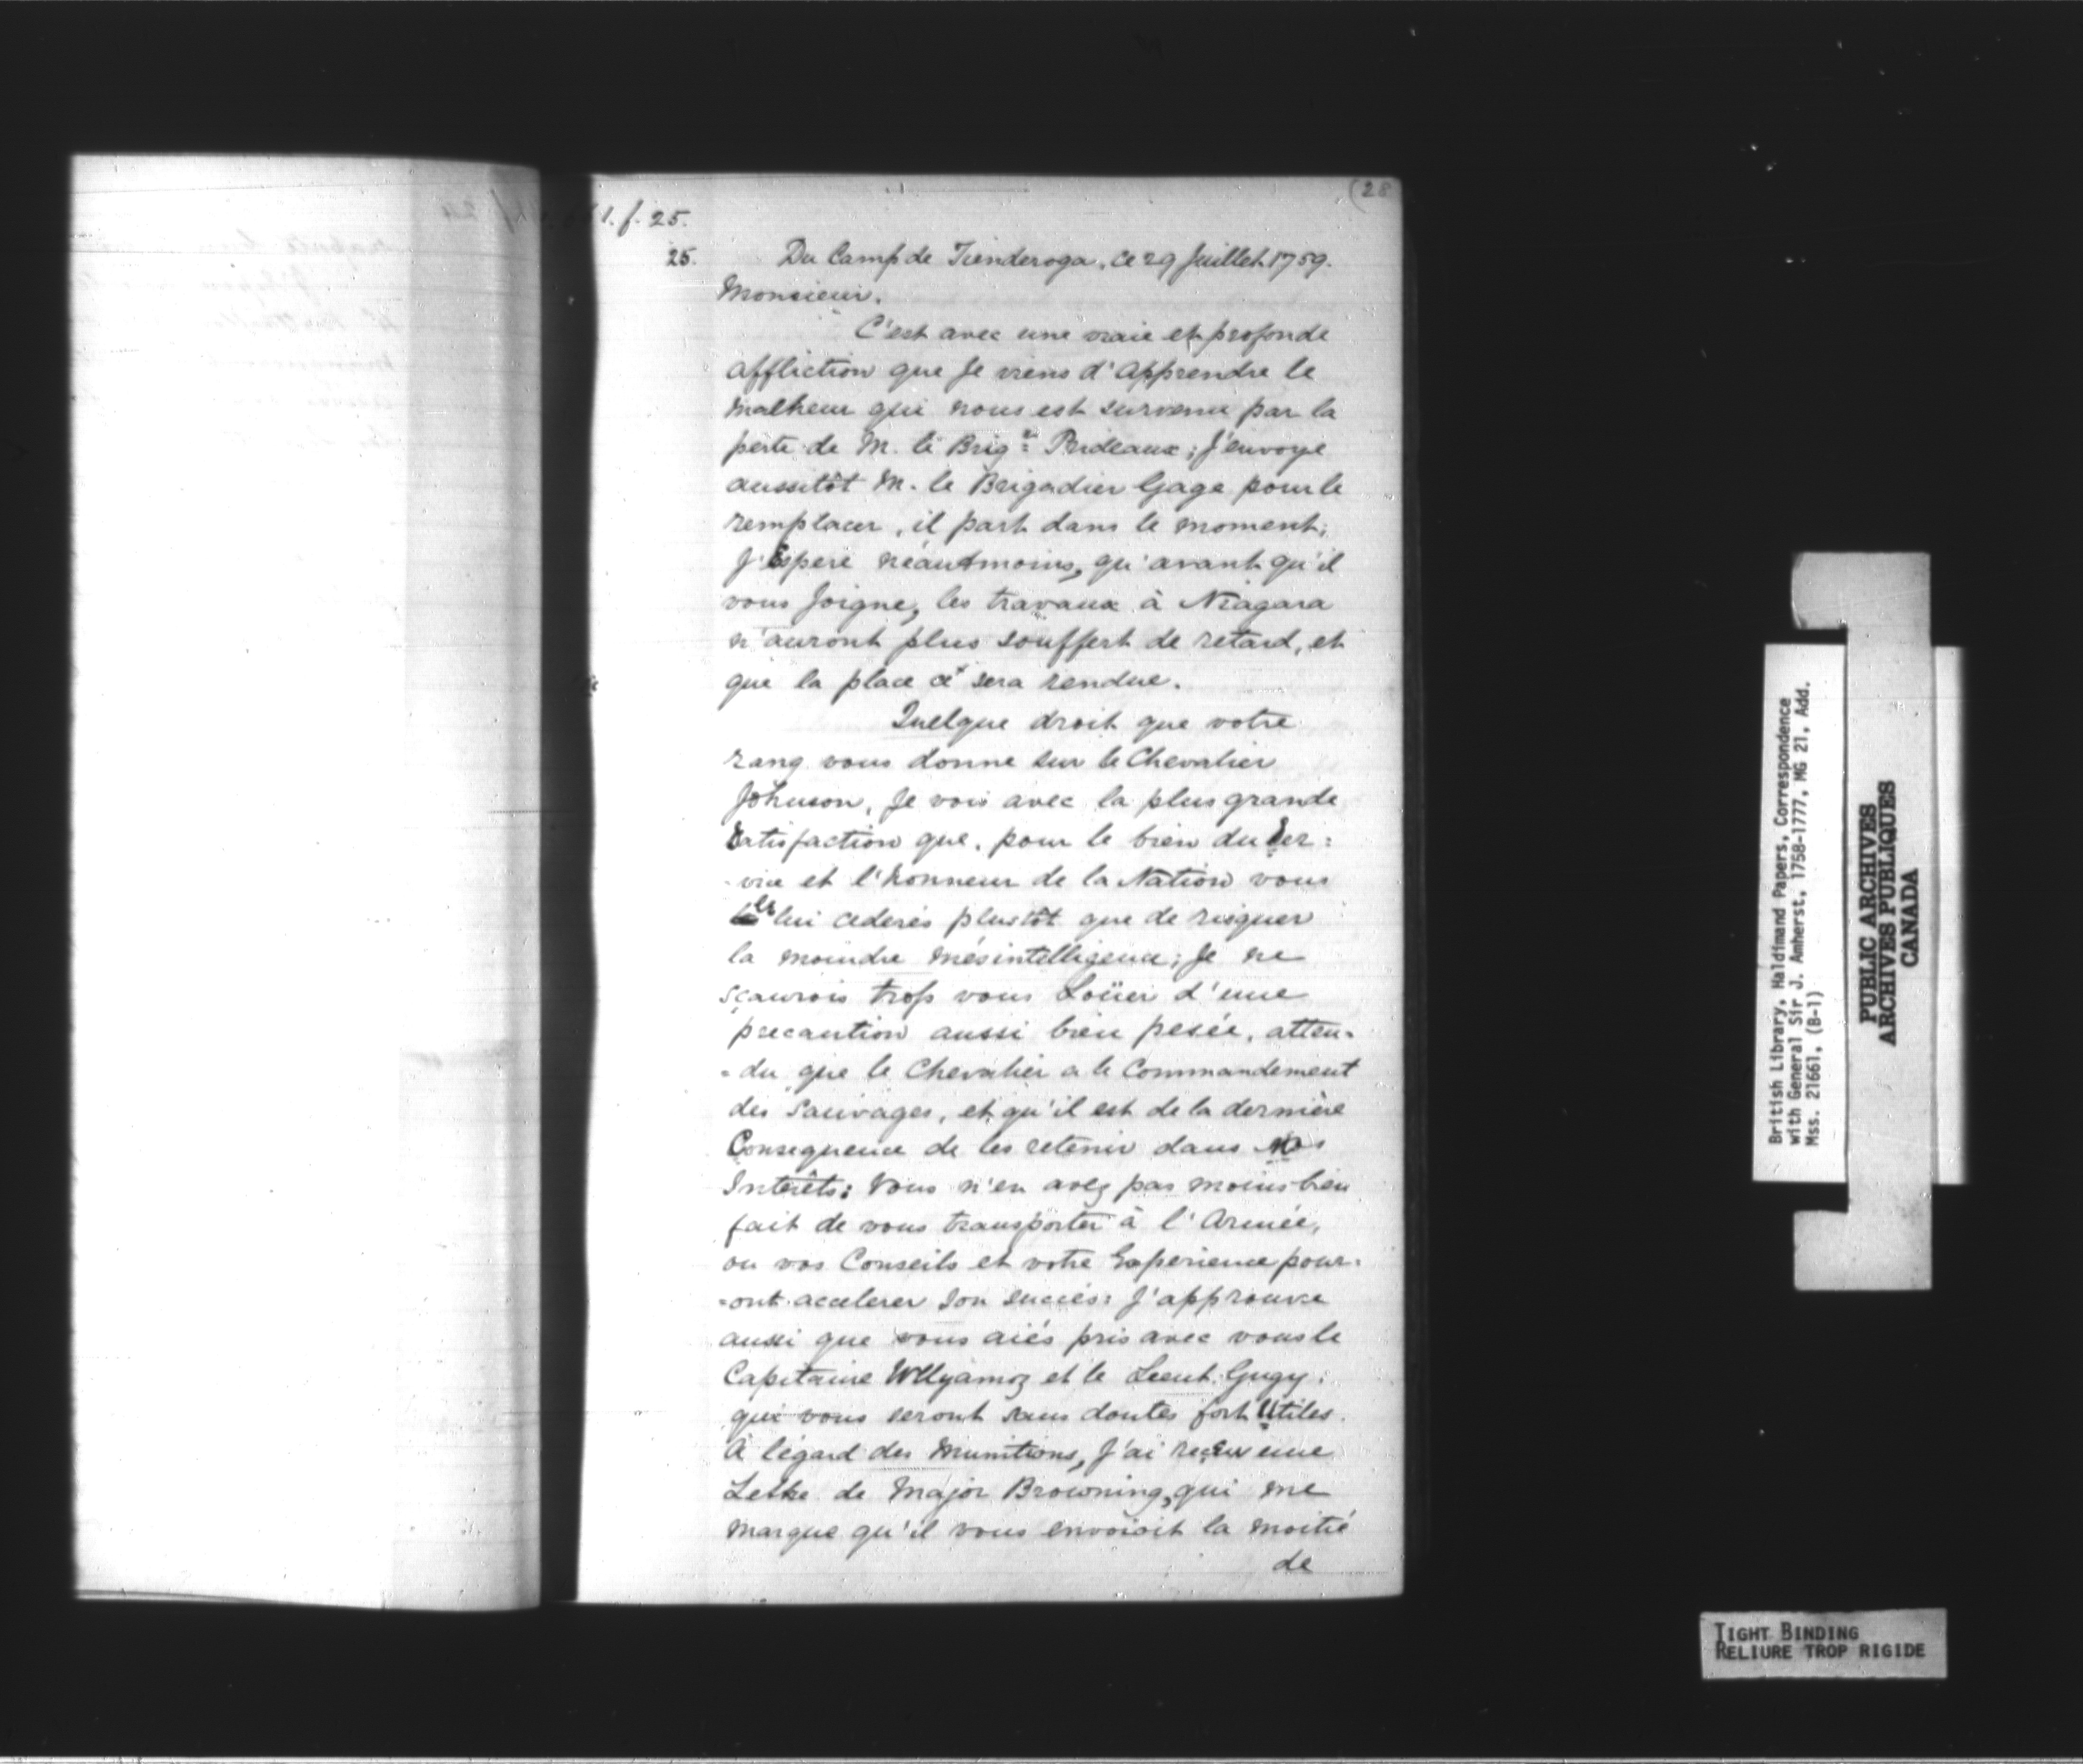 (28
1. f. 25.
25. Du Camp de Tienderoga, ce 29 Juillet 1759.
Monsieur.
C'est avec une vraie et profonde
affliction que Je viens d'Apprendre le
Malheur qui nous est survenu par la
perte de M. le Brigr Prideaux; J'envoye
aussitôt M. le Brigadier Gage pour le
remplacer, il part dans le moment;
J'Espere néantmoins, qu'avant qu'il
vous Joigne, les travaux à Niagara
n'auront plus souffert de retard, et
que la place ce x sera rendue.
Quelque droit que votre
rang vous donne sur le Chevalier
Johnson, Je vois avec la plus grande
Satisfaction que, pour le bien du Ser=
-vice et l'honneur de la Nation vous
les lui cederés plustôt que de risquer
la moindre mésintelligence; Je ne
sçaurois trop vous Loüer d'une
precaution aussi bien pesée, atten-
=du que le Chevalier a le Commandement
des Sauvages, et qu'il est de la dernière
Consequence de les retenir dans nos
Interêts: Vous n'en avez pas moins bien
fait de vous transporter à l'Armée,
ou vos Conseils et votre Experience pour-
=ont accelerer son succés: J'approuve
aussi que vous aiés pris avec vous le
Capitaine Wllyamoz et le Lieut. Gugy;
qui vous seront sans doutes fort Utiles.
A légard des Munitions, J'ai reçeu une
Lettre de Major Browning, qui me
marque qu'il vous envoioit la moitié
de
British Library, Haldimand Papers, Correspondence
with General Sir J. Amherst, 1758-1777, MG 21, Add.
Mss. 21661, (B-1)
PUBLIC ARCHIVES
ARCHIVES PUBLIQUES
CANADA
TIGHT BINDING
RELIURE TROP RIGIDE